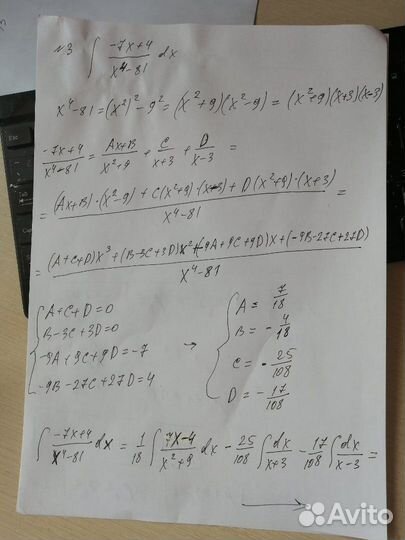 №3 ∫ (-7x+4)/(x⁴-81) dx
x⁴-81=(x²)²-9²=(x²+9)(x²-9)=(x²+9)(x+3)(x-3)
(-7x+4)/(x⁴-81) = (Ax+B)/(x²+9) + C/(x+3) + D/(x-3) =
= ((Ax+B)·(x²-9)+C(x²+9)·(x-3)+D(x²+9)·(x+3))/(x⁴-81) =
= ((A+C+D)x³+(B-3C+3D)x²+(-9A+9C+9D)x+(-9B-27C+27D))/(x⁴-81)
{ A+C+D=0 { A= 7/18
B-3C+3D=0 B= -4/18
-9A+9C+9D=-7 → C= -25/108
-9B-27C+27D=4 D= -17/108
∫ (-7x+4)/(x⁴-81) dx = 1/18 ∫ (7x-4)/(x²+9) dx - 25/108 ∫ dx/(x+3) - 17/108 ∫ dx/(x-3) =
→
Avito